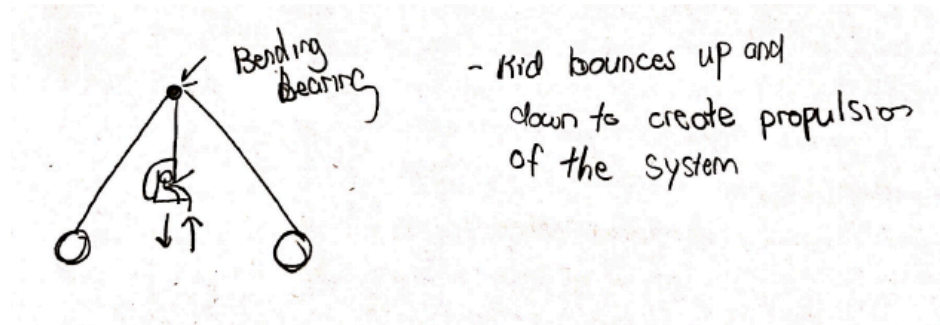 Bending
Bearing
- Kid bounces up and
down to create propulsion
of the system